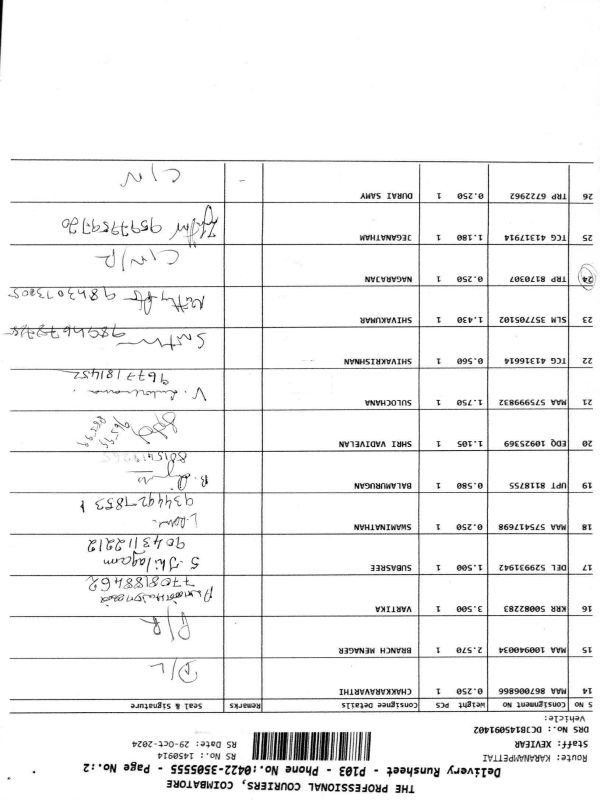 THE PROFESSIONAL COURIERS, COIMBATORE
Delivery Runsheet - P103 - Phone No.:0422-3505555 - Page No.:2
Route: KARANAMPETTAI
Staff: XEVIEAR
RS No.: 1450914
DRS No.: DCJB145091402
RS Date: 29-Oct-2024
Vehicle:
S No Consignment No Weight PCS Consignee Details Remarks Seal & Signature
14 MAA 867006866 0.250 1 CHAKKARAVARTHI D/L
15 MAA 100940034 2.570 1 BRANCH MENAGER R/R
16 KRR 50082283 3.500 1 VARTIKA 7708188462
17 DEL 529931942 1.500 1 SUBASREE S. Thilagam 9043112212
18 MAA 575417698 0.250 1 SWAMINATHAN 9344427853
19 UPT 8118755 0.580 1 BALAMURUGAN B.
20 EDQ 10925369 1.105 1 SHRI VADIVELAN
21 MAA 575999832 1.750 1 SULOCHANA V. 9677181452
22 TCG 43166614 0.560 1 SHIVAKRISHNAN
23 SLM 357705102 1.430 1 SHIVAKUMAR
24 TRP 8170307 0.250 1 NAGARAJAN C/N/R
25 TCG 41317914 1.180 1 JEGANATHAM 9597759720
26 TRP 6722962 0.250 1 DURAI SAMY - C/N